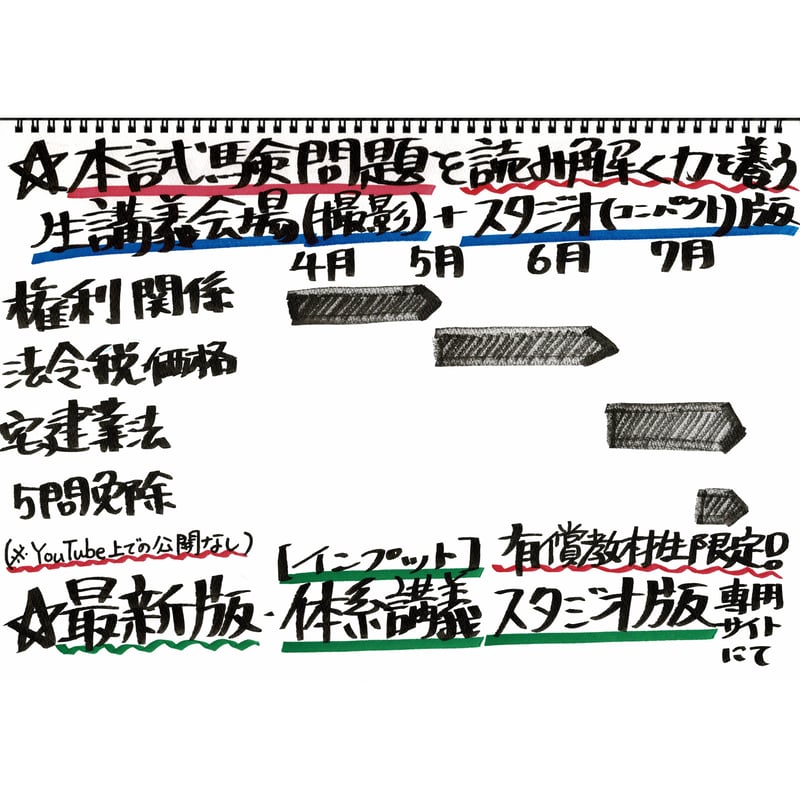 ☆本試験問題を読み解く力を養う
生講義会場(撮影)+スタジオ(コンパクト)版
4月 5月 6月 7月
権利関係
法令・税・価格
宅建業法
5問免除
(※YouTube上での公開なし)
[インプット] 有償教材生限定!
☆最新版・体系講義スタジオ版 専用サイトにて